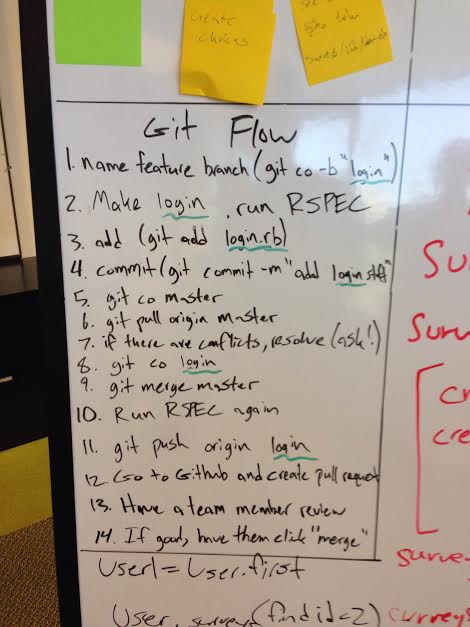 create
choices
see
survey/
Git Flow
1. name feature branch (git co -b "login")
2. Make login, run RSPEC
3. add (git add login.rb)
4. commit (git commit -m "add login stff"
5. git co master
6. git pull origin master
7. if there are conflicts, resolve (ask!)
8. git co login
9. git merge master
10. Run RSPEC again
11. git push origin login
12. Go to Github and create pull request
13. Have a team member review
14. If good, have them click "merge"
User1 = User.first
User. surveys (find id = 2) surveys
Su
Surv
cr
cre
surve